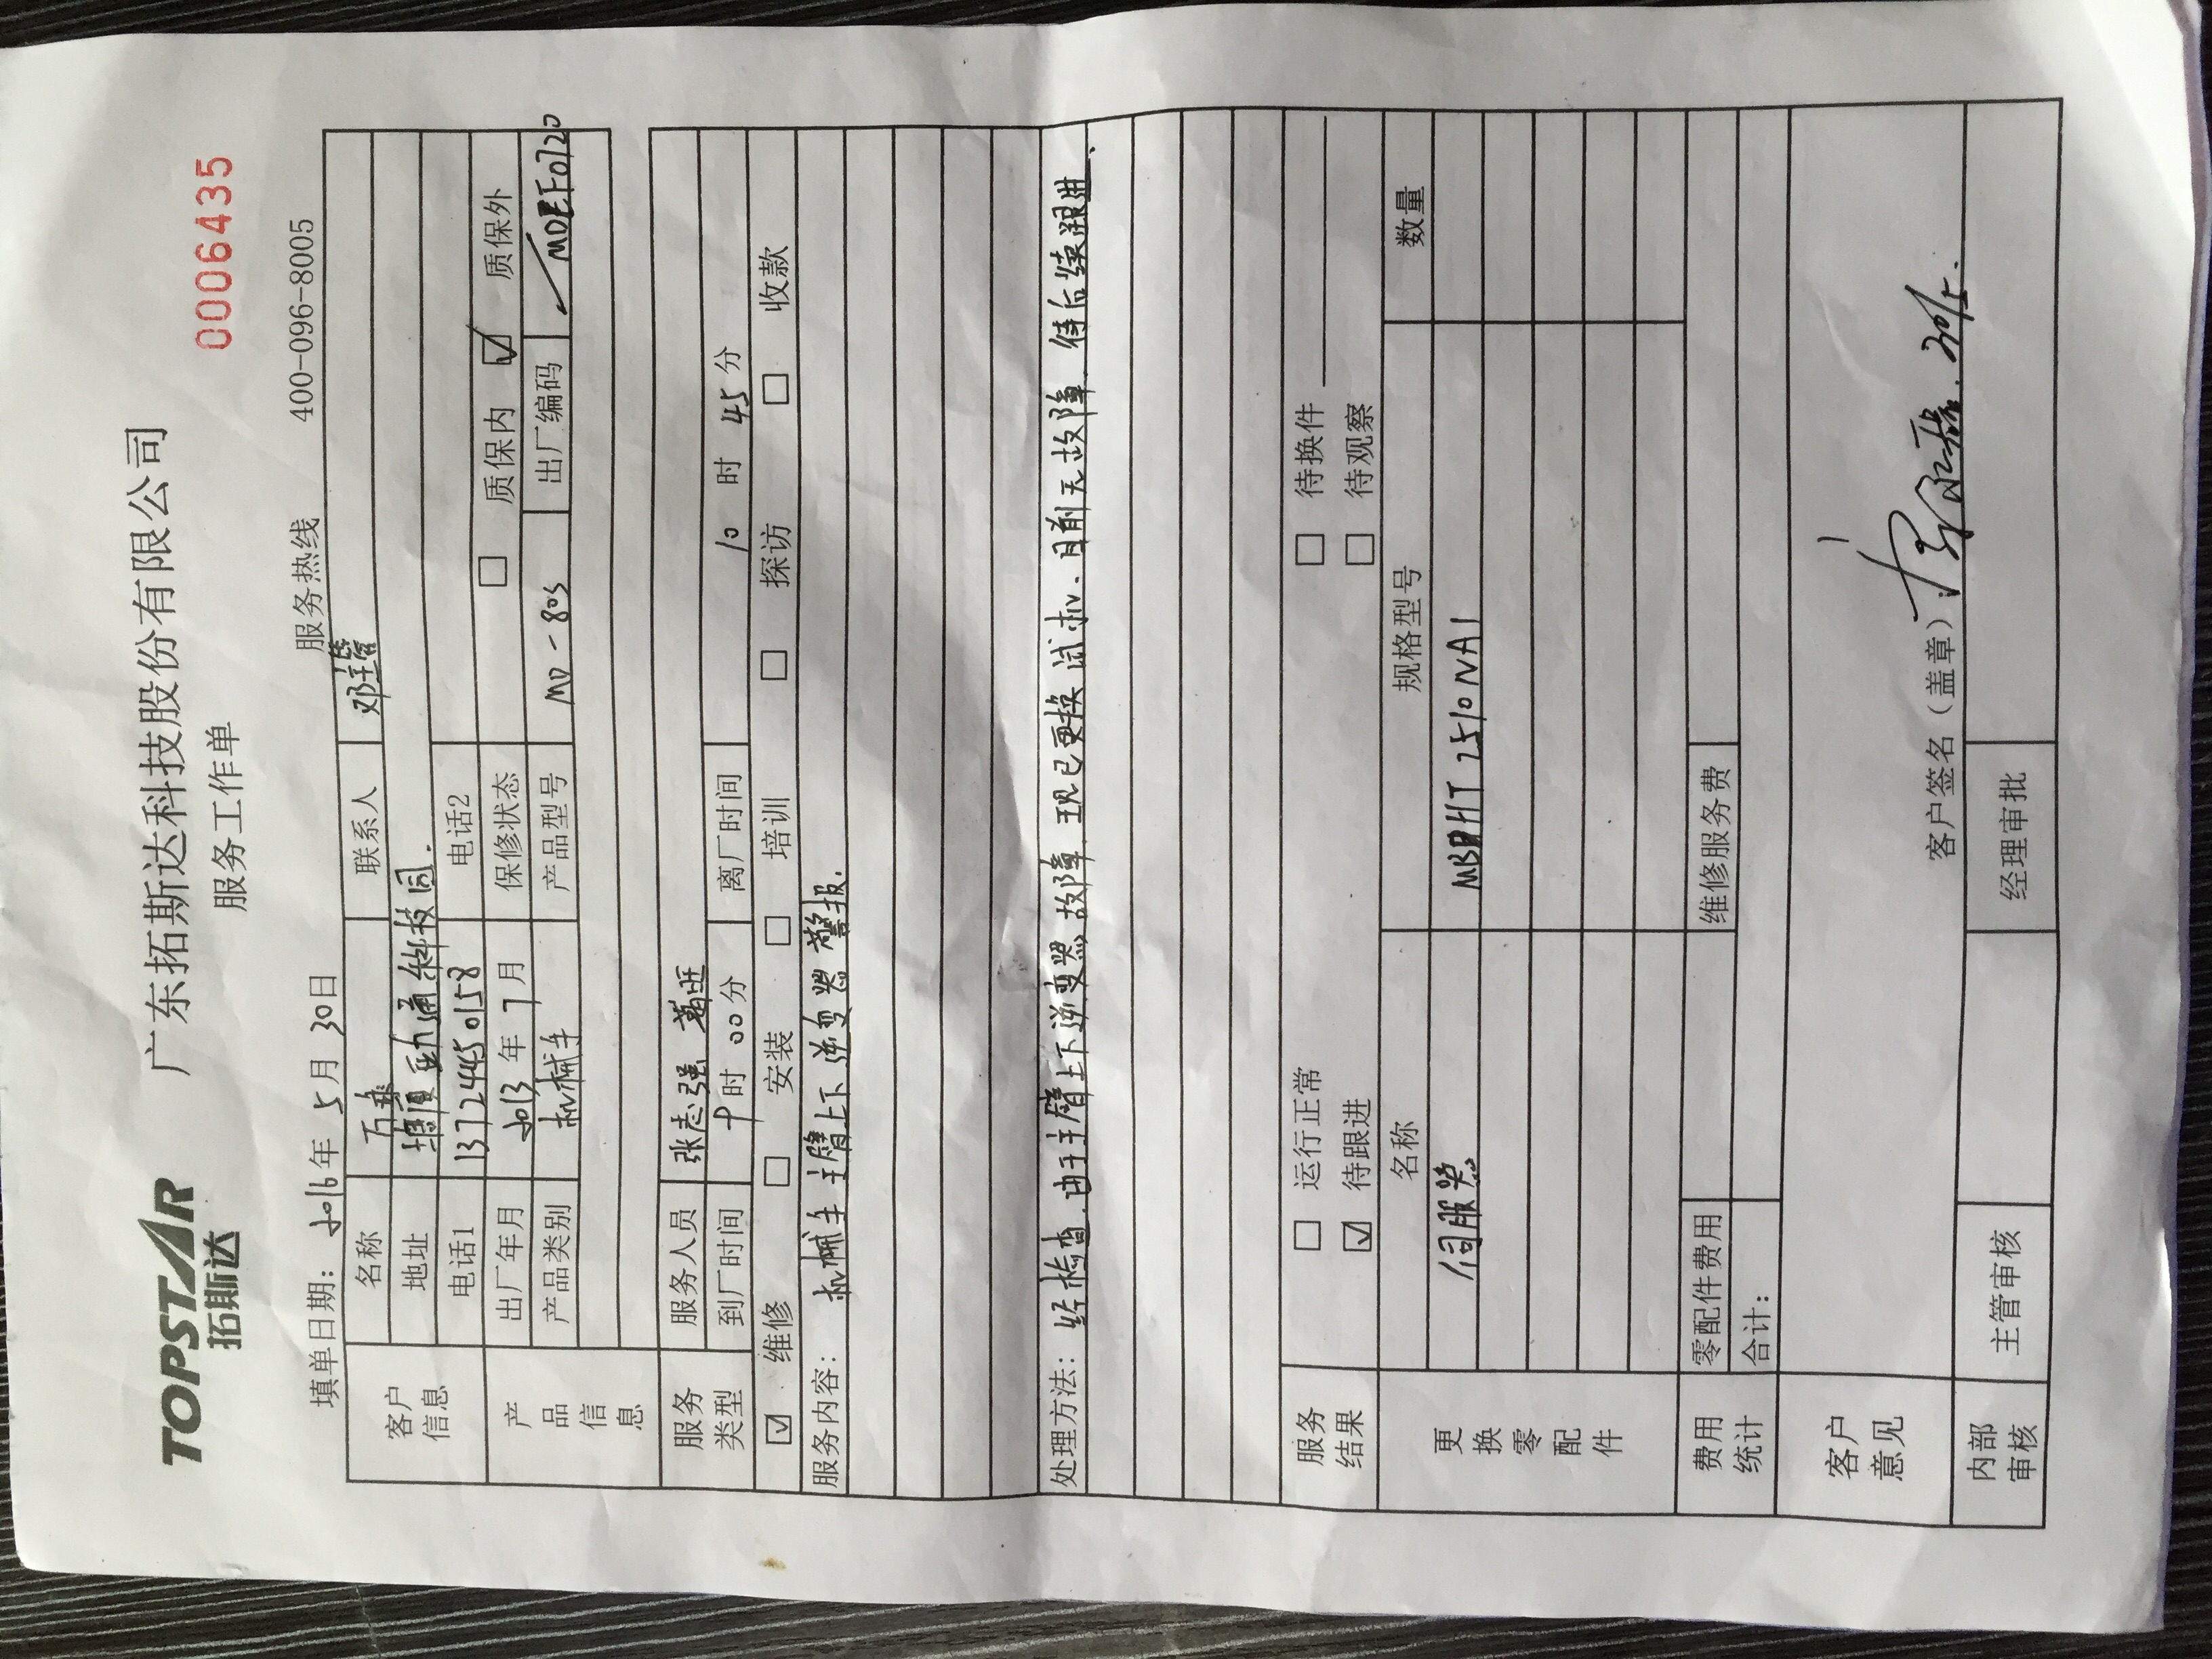 TOPSTAR
拓斯达
广东拓斯达科技股份有限公司
服务工作单
0006435
填单日期： 2016年 5月 30日 服务热线 400-096-8005
客户信息
名称 联系人 邓
地址 科技园.
电话1 13724450158 电话2
产品信息
出厂年月 2013 年 7 月 保修状态 □ 质保内 ☑ 质保外
产品类别 机械手 产品型号 MD-80S 出厂编码
服务类型
服务人员 张志强
到厂时间 9 时 00 分 离厂时间 10 时 45 分
☑ 维修 □ 安装 □ 培训 □ 探访 □ 收款
服务内容： 机械手 主臂上下逆变器警报.
处理方法： 经检查.由于主臂上下逆变器故障.现已更换试机.目前无故障.待后续跟进、
服务结果
□ 运行正常 □ 待换件
☑ 待跟进 □ 待观察
更换零配件
名称 规格型号 数量
伺服器 2510NA1
费用统计
零配件费用 维修服务费
合计：
客户意见
客户签名（盖章）：
内部审核
主管审核 经理审批